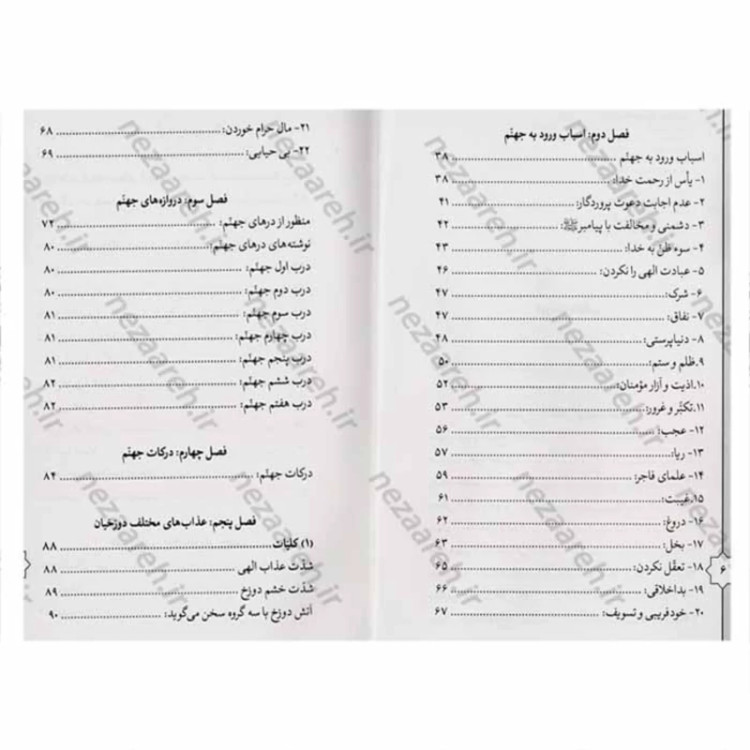 فصل دوم: اسباب ورود به جهنّم
اسباب ورود به جهنّم ........ ۳۸
۱- یأس از رحمت خدا: ........ ۳۸
۲- عدم اجابت دعوت پروردگار: ........ ۴۱
۳- دشمنی و مخالفت با پیامبرﷺ: ........ ۴۲
۴- سوء ظنّ به خدا: ........ ۴۳
۵- عبادت الهی را نکردن: ........ ۴۶
۶- شرک: ........ ۴۷
۷- نفاق: ........ ۴۷
۸- دنیاپرستی: ........ ۴۸
۹. ظلم و ستم: ........ ۵۰
۱۰. اذیت و آزار مؤمنان: ........ ۵۲
۱۱. تکبّر و غرور: ........ ۵۳
۱۲- عجب: ........ ۵۶
۱۳- ریا: ........ ۵۷
۱۴- علمای فاجر: ........ ۵۹
۱۵. غیبت: ........ ۶۱
۱۶- دروغ: ........ ۶۲
۱۷- بخل: ........ ۶۳
۱۸- تعقّل نکردن: ........ ۶۵
۱۹- بداخلاقی: ........ ۶۶
۲۰- خودفریبی و تسویف: ........ ۶۷
۶
۲۱- مال حرام خوردن: ........ ۶۸
۲۲- بی حیایی: ........ ۶۹
فصل سوم: دروازه‌های جهنّم
منظور از درهای جهنّم: ........ ۷۲
نوشته‌های درهای جهنّم: ........ ۸۰
درب اول جهنّم: ........ ۸۰
درب دوم جهنّم: ........ ۸۰
درب سوم جهنّم: ........ ۸۱
درب چهارم جهنّم: ........ ۸۱
درب پنجم جهنّم: ........ ۸۱
درب ششم جهنّم: ........ ۸۲
درب هفتم جهنّم: ........ ۸۲
فصل چهارم: درکات جهنّم
درکات جهنّم: ........ ۸۴
فصل پنجم: عذاب‌های مختلف دوزخیان
(۱) کلیّات ........ ۸۸
شدّت عذاب الهی ........ ۸۸
شدّت خشم دوزخ ........ ۸۹
آتش دوزخ با سه گروه سخن می‌گوید: ........ ۹۰
nezaareh.ir